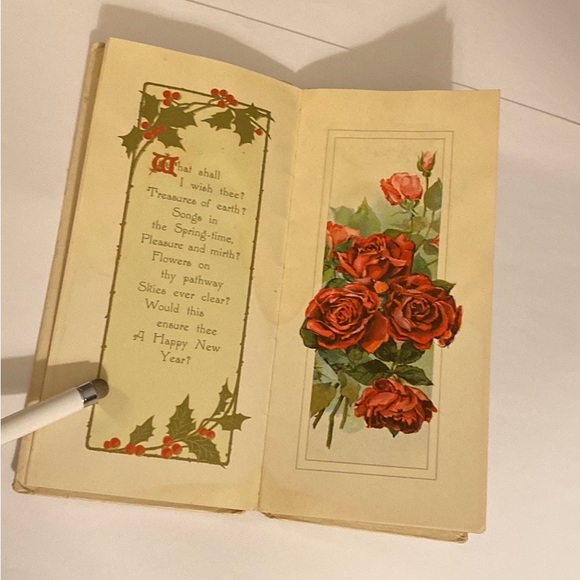 What shall
I wish thee?
Treasures of earth?
Songs in
the Spring-time,
Pleasure and mirth?
Flowers on
thy pathway
Skies ever clear?
Would this
ensure thee
A Happy New
Year?